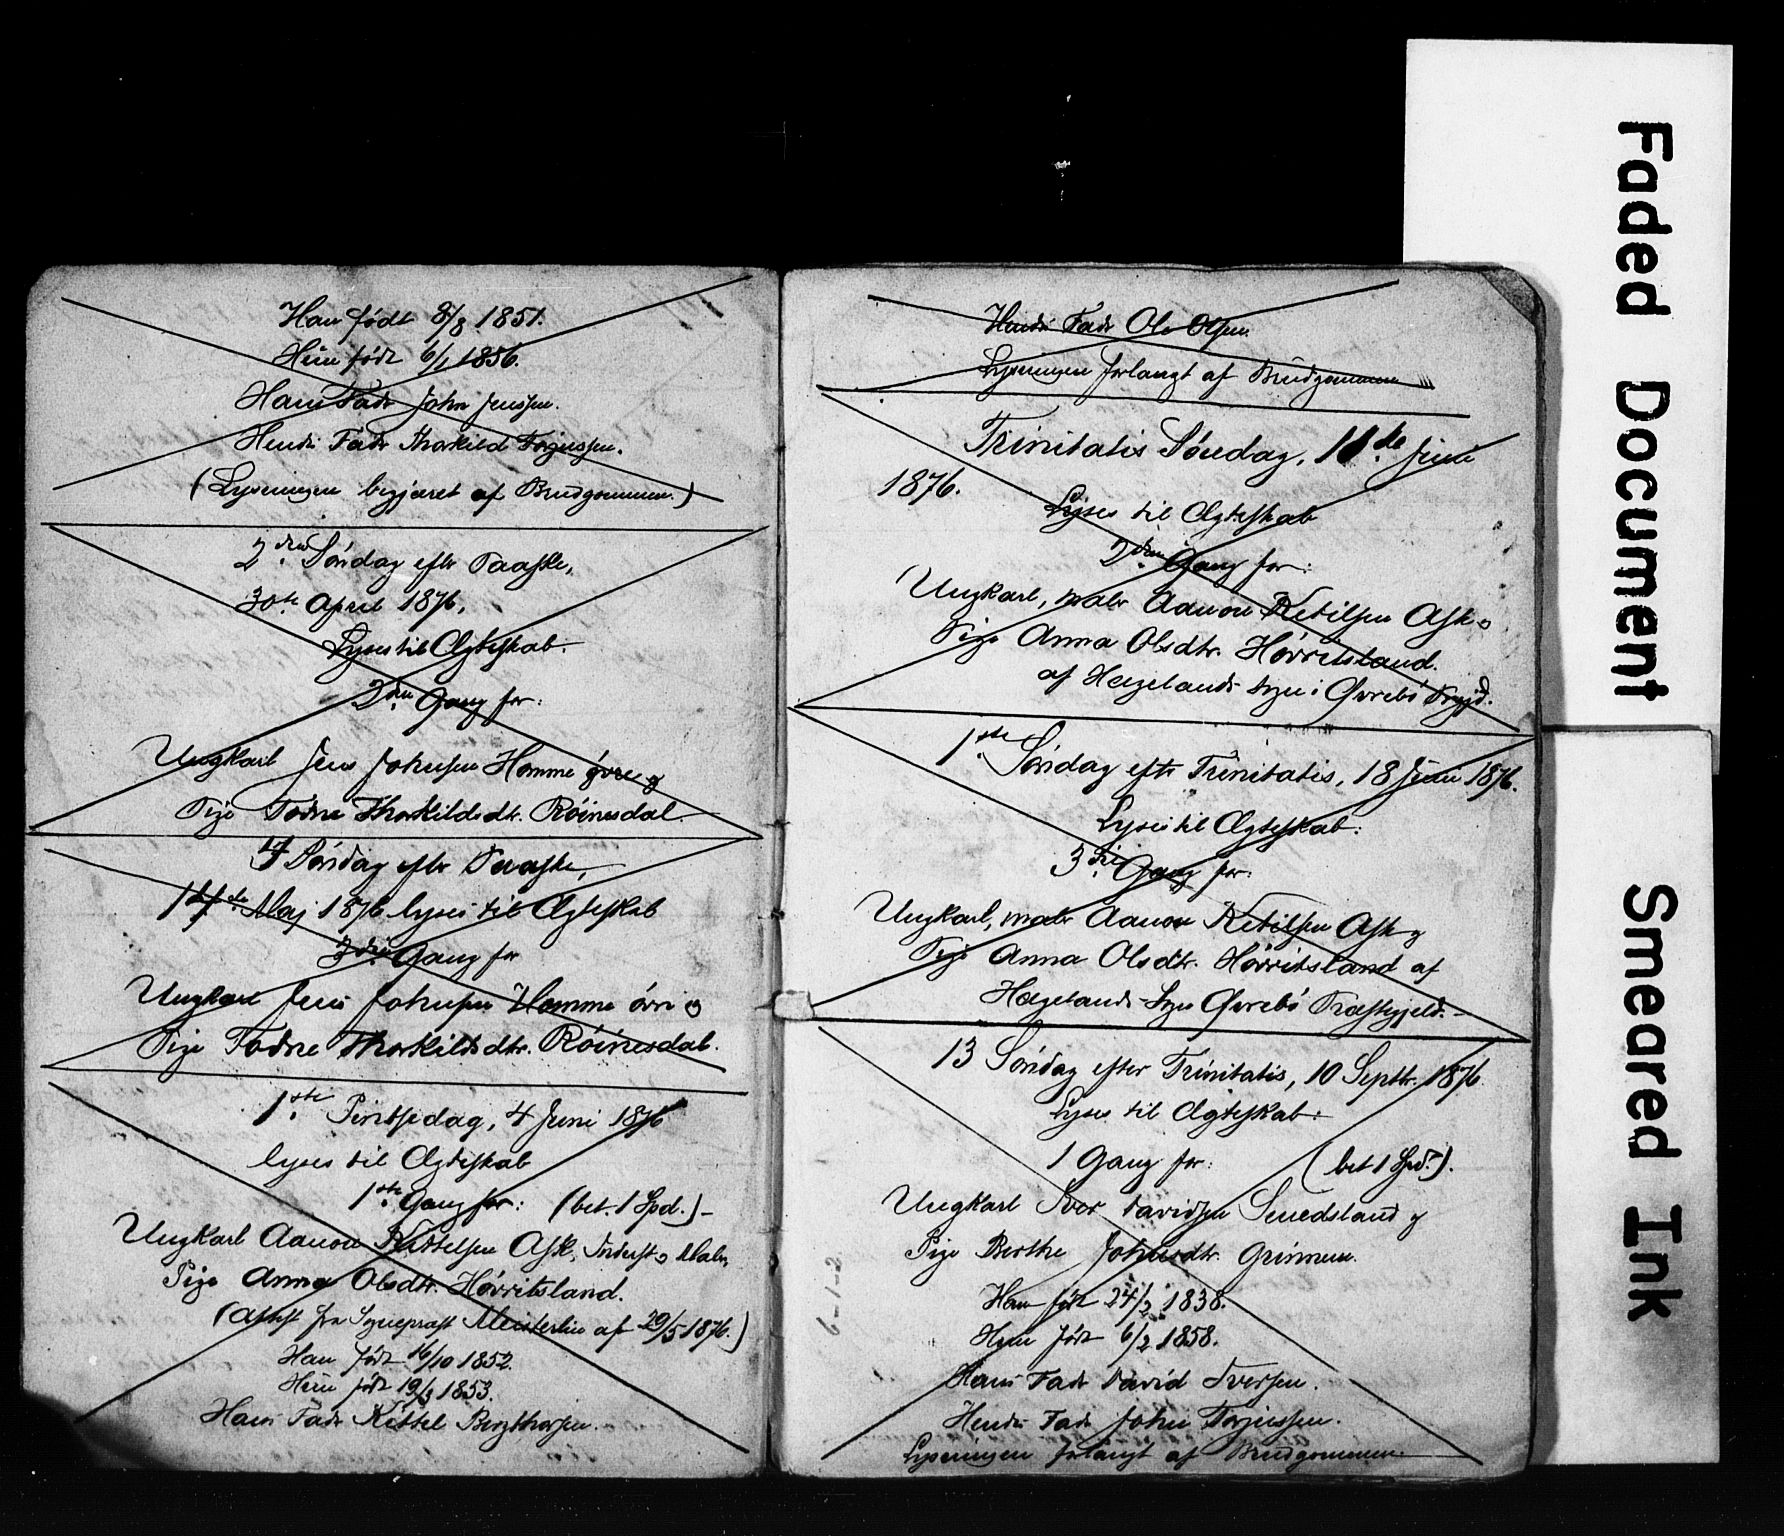 Han født 8/8 1851.
Hun født 6/1 1856.
Hans Fader John Jenssen.
Hendes Fader Thorkild Torjussen.
(Lysningen begjæret af Brudgommen.)
2den Søndag efter Paaske,
30te April 1876,
Lyses til Ægteskab.
2den Gang for:
Ungkarl Jens Johnsen Homme øvre og
Pige Todne Thorkildsdtr. Røinesdal.
4 Søndag efter Paaske,
14de Maj 1876 lyses til Ægteskab
3die Gang for
Ungkarl Jens Johnsen Homme øvre og
Pige Todne Thorkildsdtr. Røinesdal.
1ste Pintsedag, 4 Juni 1876
lyses til Ægteskab
1ste Gang for: (bet. 1 Spd.)-
Ungkarl Aanon Kittelsen Ask, Inderst og Maler,
Pige Anna Olsdtr. Hørritsland.
(Attest fra Sognepræst Meisterlin af 29/5 1876.)
Han født 16/10 1852.
Hun født 19/3 1853.
Hans Fader Kittel Bergthorsen.
Hendes Fader Ole Olsen.
Lysningen forlangt af Brudgommen
Trinitatis Søndag, 11te Juni
1876.
Lyses til Ægteskab
2den Gang for:
Ungkarl, maler Aanon Ketilsen Ask og
Pige Anna Olsdtr. Hørritsland.
af Hægelands Sogn i Øvrebø Prgjd.
1ste Søndag efter Trinitatis, 18 Juni 1876.
Lyses til Ægteskab:
3die Gang for:
Ungkarl, maler Aanon Ketilsen Ask og
Pige Anna Olsdtr. Hørritsland af
Hægelands Sogn Øvrebø Præstegjeld.-
13 Søndag efter Trinitatis, 10 Septbr. 1876
Lyses til Ægteskab:
1 Gang for: (bet 1 Spd.).
Ungkarl Iver Davidsen Senedsland og
Pige Berthe Johnsdtr. Grimnem.
Han født 24/2 1838.
Hun født 6/2 1858.
Hans Fader David Iversen.
Hendes Fader John Torjussen.
Lysningen forlangt af Brudgommen
6-1-2
Faded Document
Smeared Ink